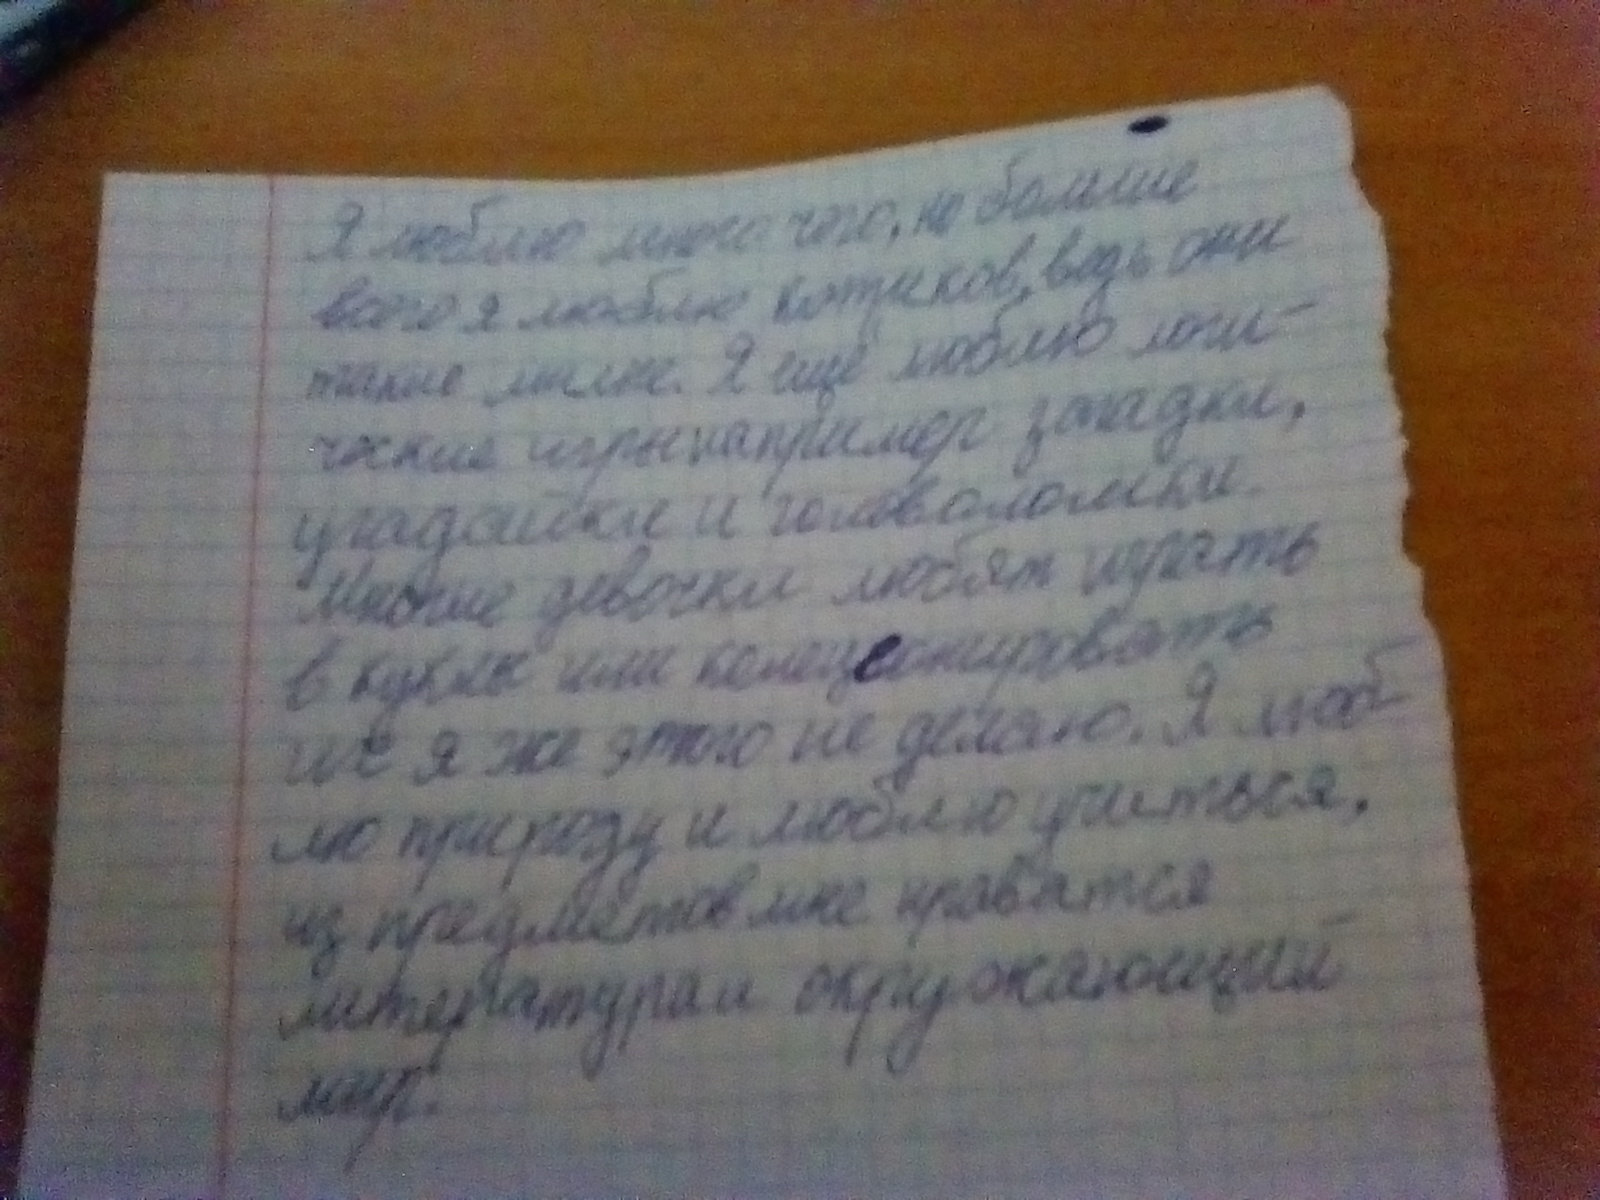 Я люблю много чего, но больше
всего я люблю котиков, ведь они
такие милые. Я ещё люблю логи-
ческие игры например загадки,
угадайки и головоломки.
Многие девочки любят играть
в куклы или
их я же этого не делаю. Я люб-
лю природу и люблю учиться,
из предметов мне нравятся
литература и окружающий
мир.